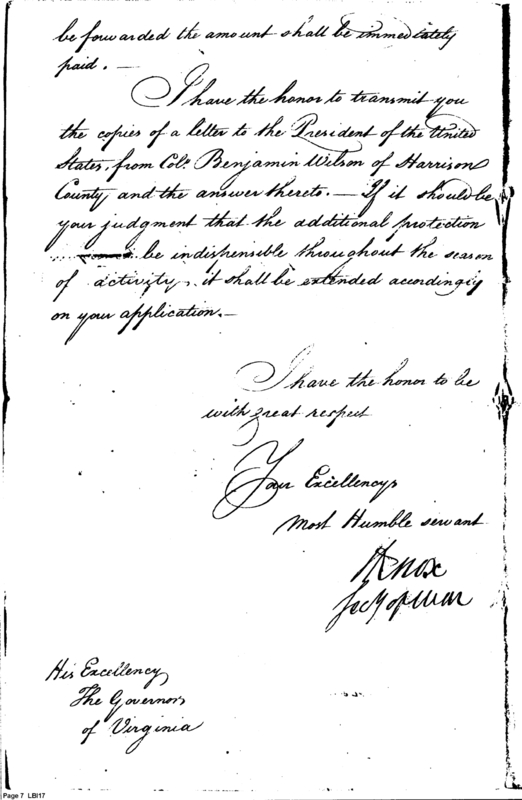 be forwarded the amount shall be immediately
paid. —
I have the honor to transmit you
the copies of a letter to the President of the United
States, from Colo. Benjamin Wilson of Harrison
County, and the answer thereto. — If it should be
your judgment that the additional protection
be indispensible throughout the season
of activity, it shall be extended accordingly
on your application. —
I have the honor to be
with great respect
Your Excellencys
most Humble servant
HKnox
Secy of War
His Excellency
The Governor
of Virginia
Page 7 LBI17